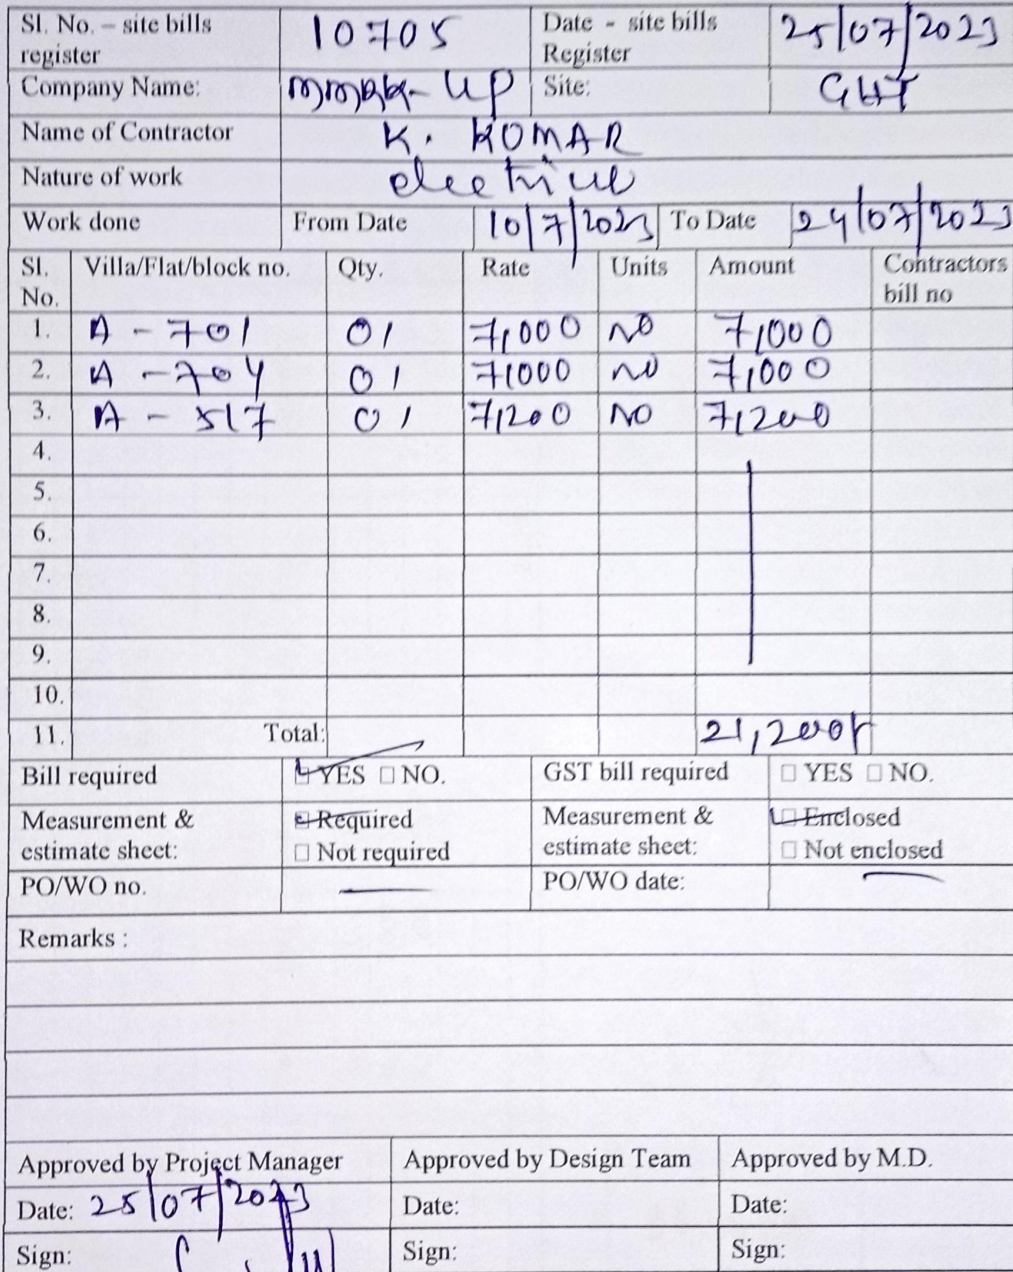 Sl. No. – site bills register 10705 Date - site bills Register 25/07/2023
Company Name: UP Site: GHT
Name of Contractor K. KUMAR
Nature of work electrical
Work done From Date 10/7/2023 To Date 24/07/2023
Sl. No. Villa/Flat/block no. Qty. Rate Units Amount Contractors bill no
1. A - 701 01 7,000 no 7,000
2. A - 704 01 7,000 no 7,000
3. A - 517 01 7,200 NO 7,200
4.
5.
6.
7.
8.
9.
10.
11. Total: 21,200/-
Bill required YES NO. GST bill required YES NO.
Measurement & estimate sheet: Required Measurement & estimate sheet: Enclosed
Not required Not enclosed
PO/WO no. — PO/WO date: —
Remarks :
Approved by Project Manager Approved by Design Team Approved by M.D.
Date: 25/07/2023 Date: Date:
Sign: Sign: Sign: